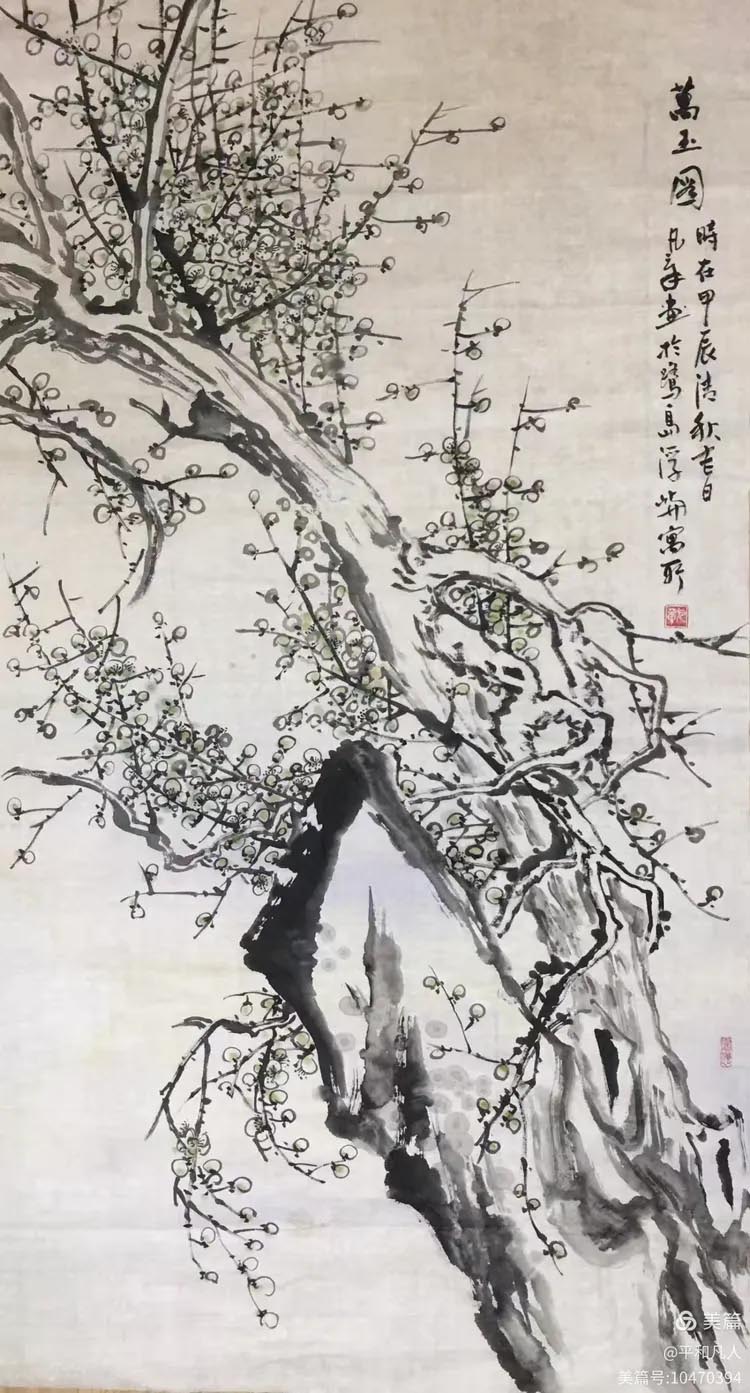 萬玉圖
時在甲辰清秋吉日
凡辛画於鹭島浮嶼寓所
美篇
@平和凡人
美篇号:10470394